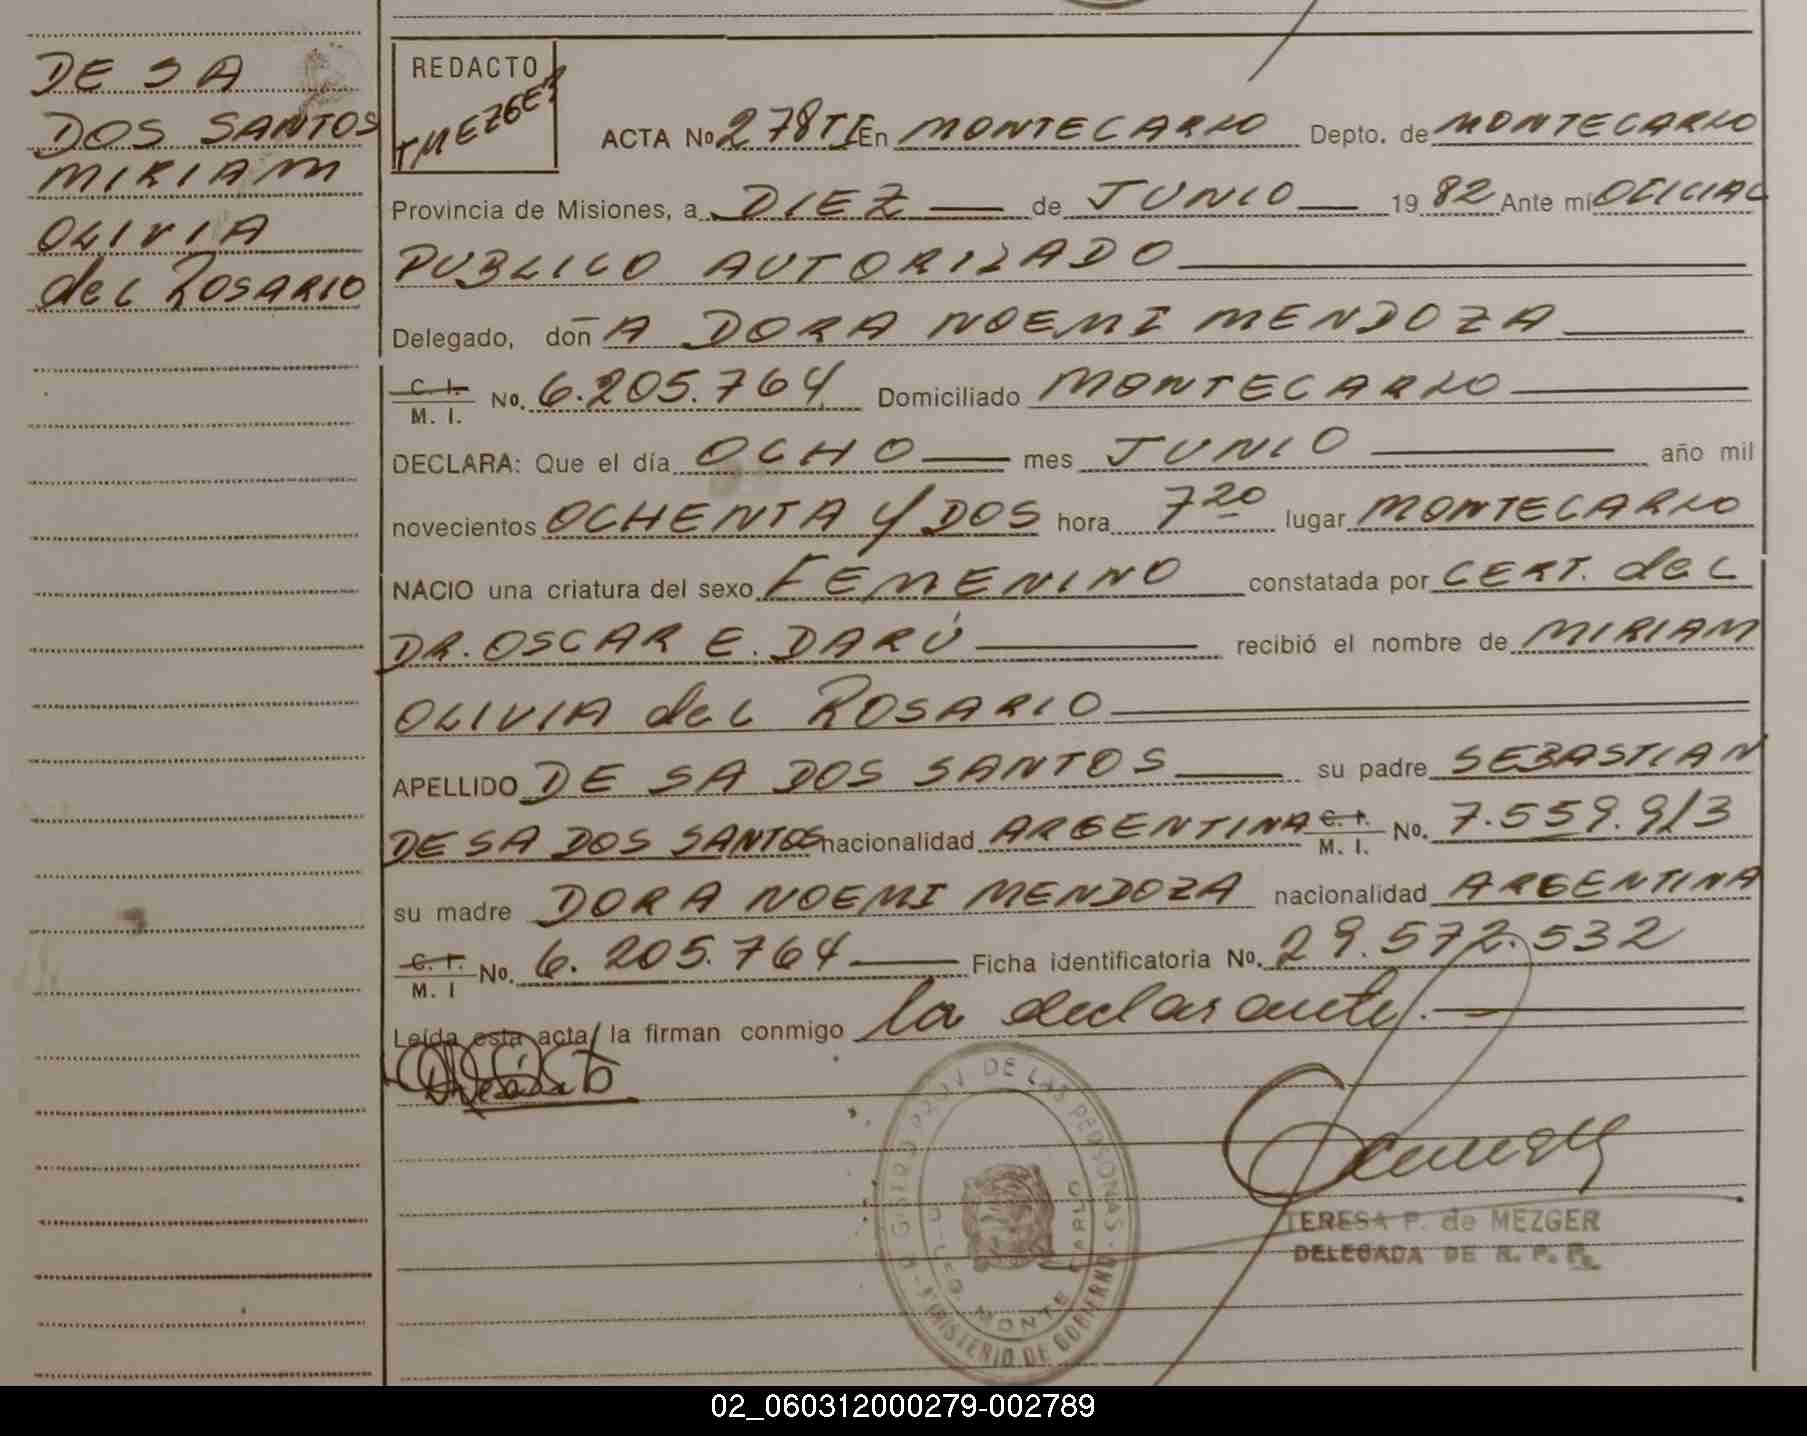 DE SA
DOS SANTOS
MIRIAM
OLIVIA
del ROSARIO
REDACTO
TMEZGER
ACTA No 278 TI En MONTECARLO Depto. de MONTECARLO
Provincia de Misiones, a DIEZ de JUNIO 1982 Ante mí OFICIAL
PUBLICO AUTORIZADO
Delegado, don̄A DORA NOEMI MENDOZA
C. I.
M. I. No. 6.205.764 Domiciliado MONTECARLO
DECLARA: Que el día OCHO mes JUNIO año mil
novecientos OCHENTA Y DOS hora 7 20 lugar MONTECARLO
NACIO una criatura del sexo FEMENINO constatada por CERT. del
DR. OSCAR E. DARÚ recibió el nombre de MIRIAM
OLIVIA del ROSARIO
APELLIDO DE SA DOS SANTOS su padre SEBASTIAN
DE SA DOS SANTOS nacionalidad ARGENTINA C. I. M. I. No. 7.559.913
su madre DORA NOEMI MENDOZA nacionalidad ARGENTINA
C. I.
M. I No. 6.205.764 Ficha identificatoria No. 29.572.532
Leída esta acta, la firman conmigo la declarante.
REGISTRO PROV. DE LAS PERSONAS
MINISTERIO DE GOBIERNO
MONTE CARLO
TERESA P. de MEZGER
DELEGADA DE R. P. P.
02_060312000279-002789